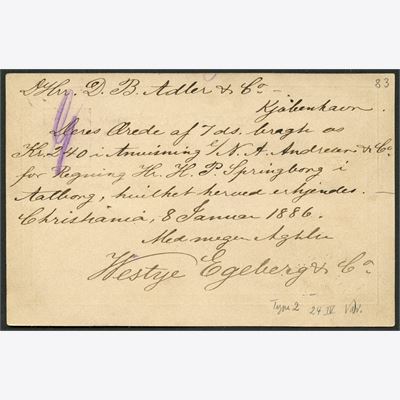 DHrr. D. B. Adler & Co –
83
Kjöbenhavn.
Deres Ærede af 7 ds. bragte os
Kr. 240 i Anvisning c/ N. A. Andresen & Co
for Regning Hr. H. P. Springborg i
Aalborg, hvilket herved erkjendes. –
Christiania, 8 Januar 1886.
Med megen Agtelse
Westye Egeberg & Co.
Type 2 24 IV